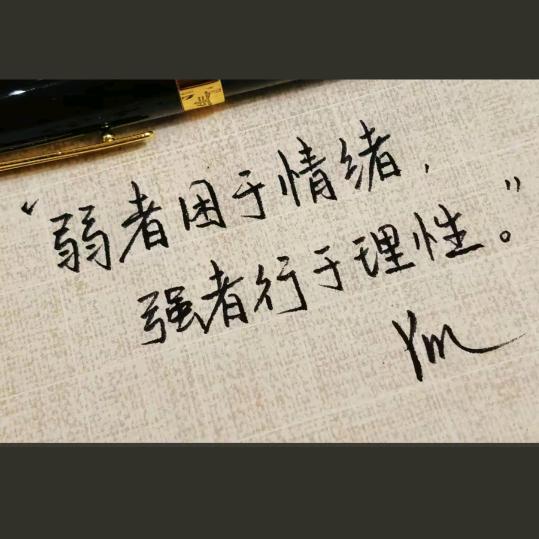 “弱者困于情绪,
强者行于理性。”
Ym